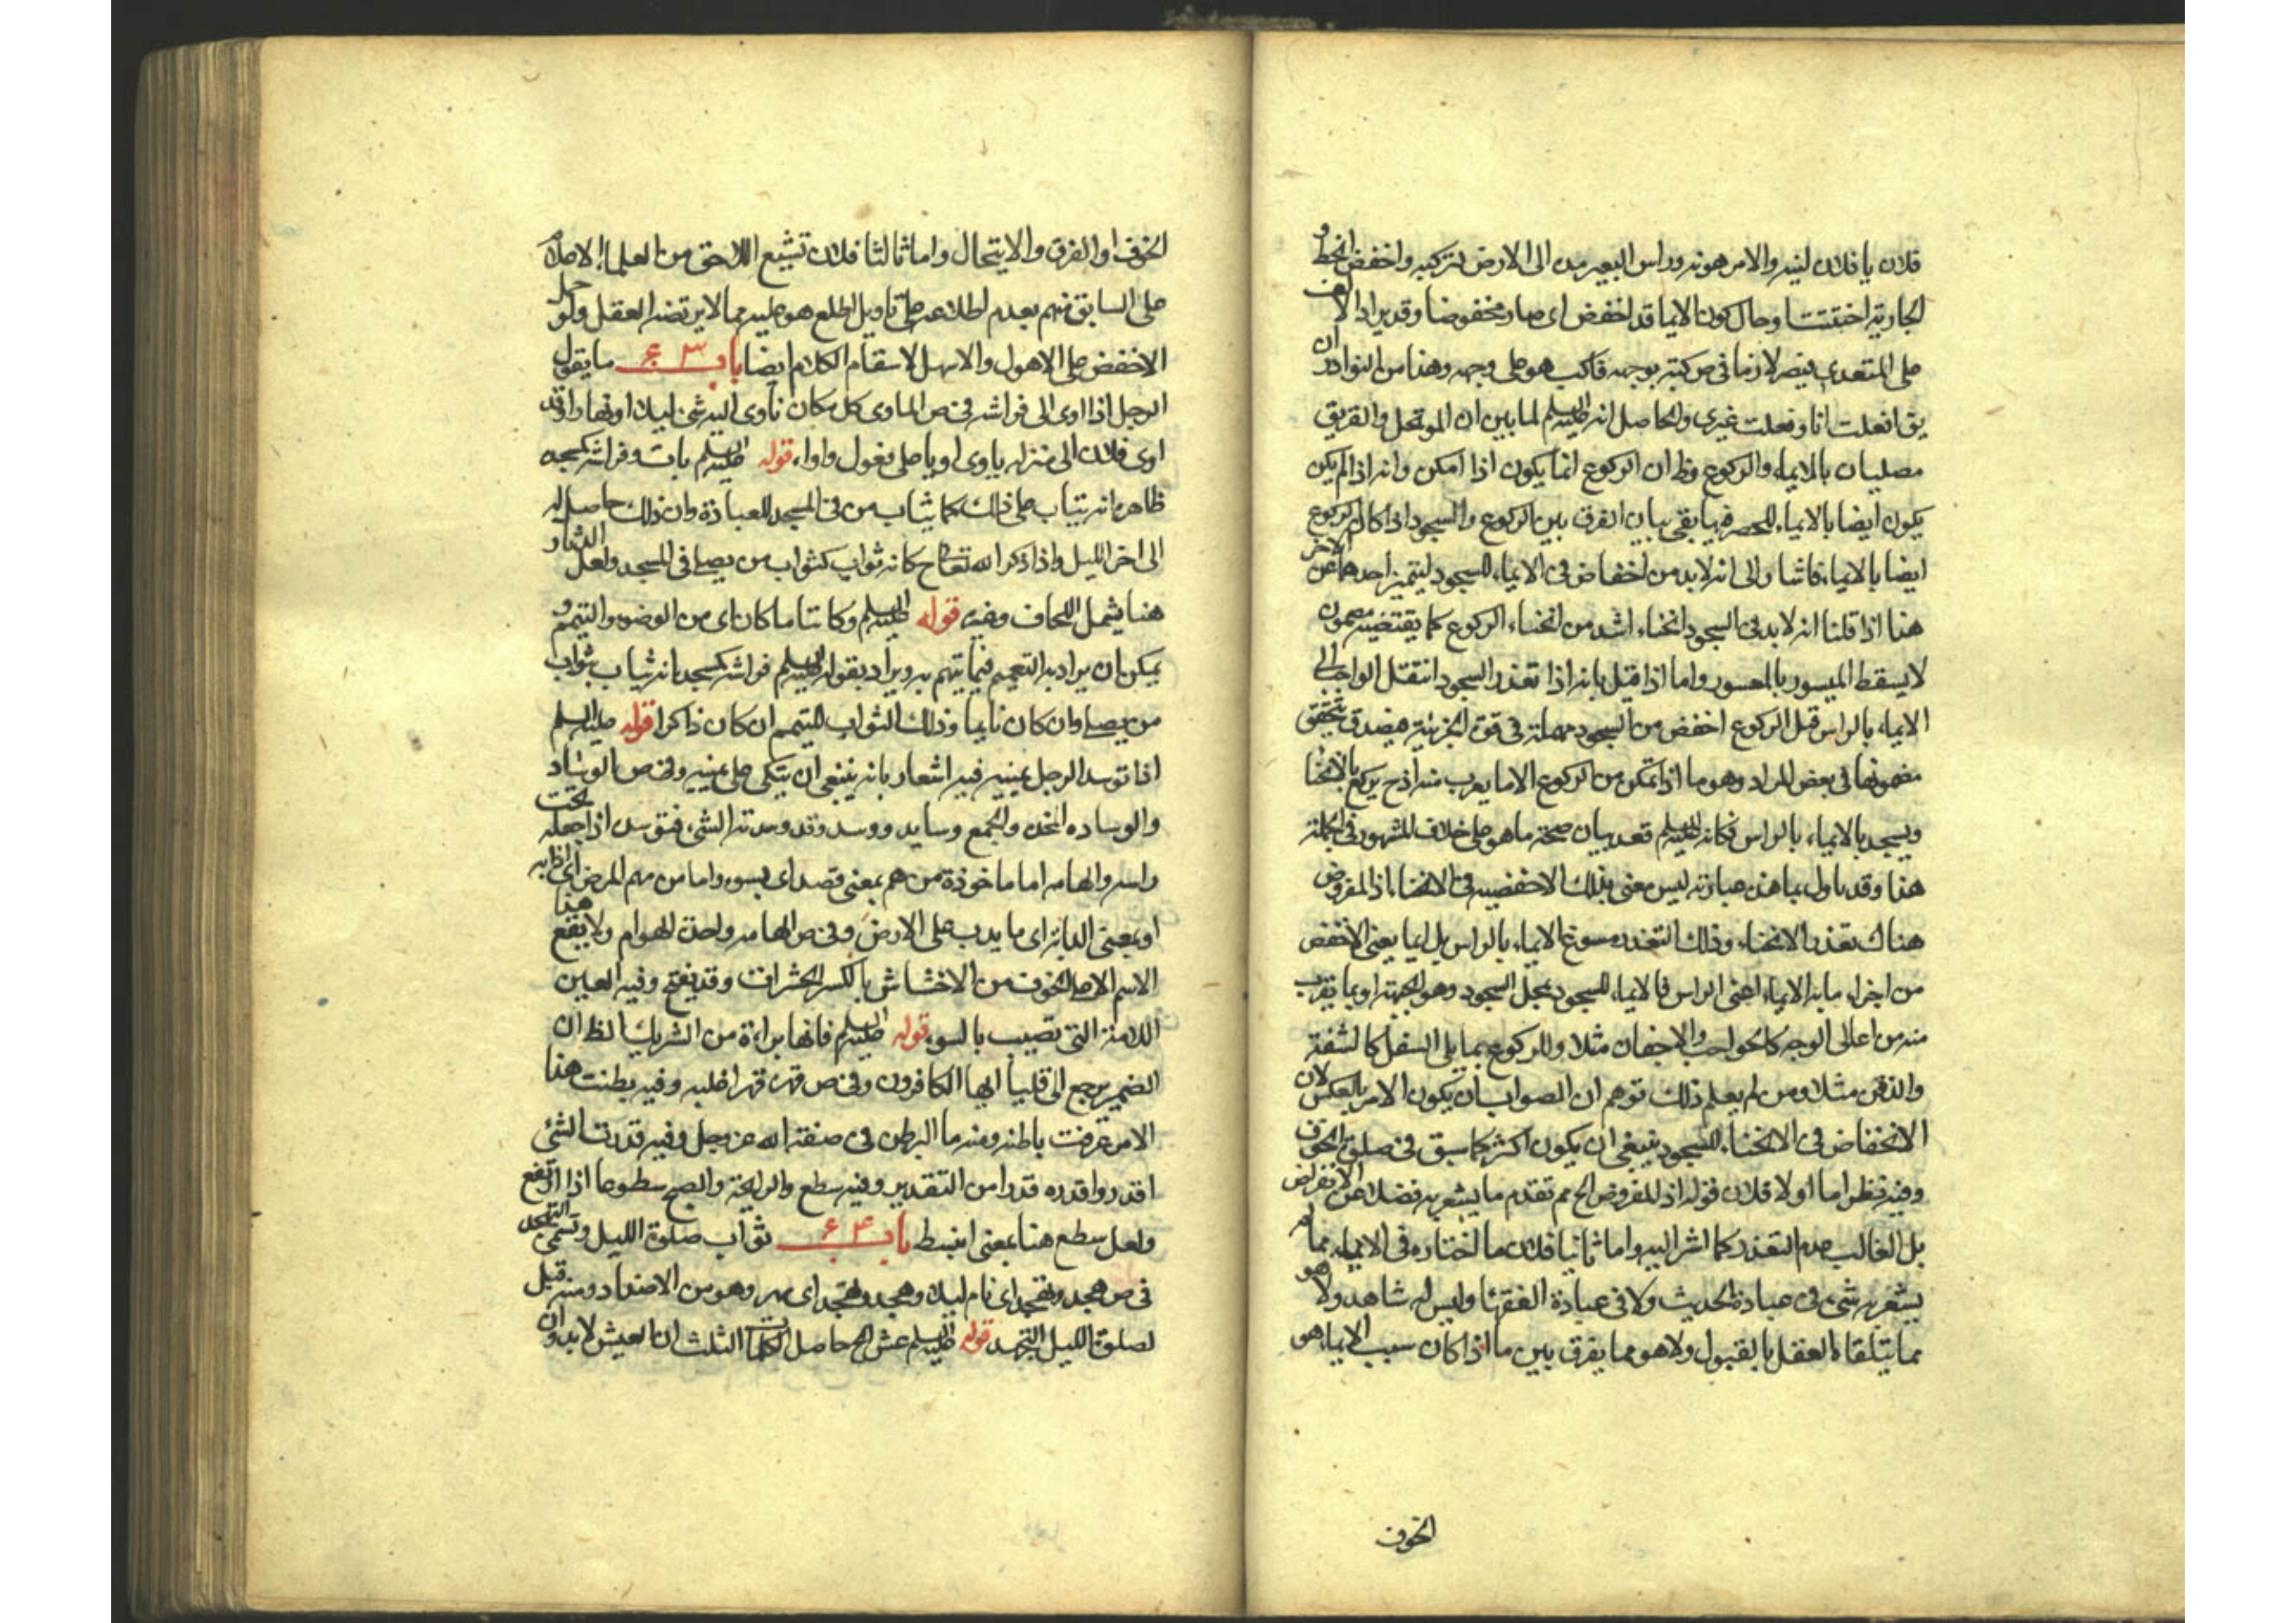 فلان يا فلان لينه والامر هونه وراس البعير مده الى الارض لتركبه واخفض انحط و
الجارية اختتنت وحال كون الايما قد اخفض اى صار مخفوضا وقد يراد الالف
على المتعدى فيصر لازما فى ص كبته بوجهه فاكب هو على وجهه وهذا من النوادر ان
يق افعلت انا وفعلت غيرى والحاصل انه عليه السلم لما بين ان الموتحل والغريق
مصليان بالايماء والركوع وظ ان الركوع انما يكون اذا امكن وانه اذا لم يكن
يكون ايضا بالايماء للحصر فيها بقى بيان الفرق بين الركوع والسجود اذا كان الركوع
ايضا بالايماء فاشار الى انه لابد من اخفاض فى الايماء للسجود ليتميز احدهما عن الاخر
هذا اذا قلنا انه لابد فى السجود انحناء اشد من انحناء الركوع كما يقتضيه مضمون
لا يسقط الميسور بالمعسور واما اذا قيل بانه اذا تعذر السجود انتقل الواجب الى
الايماء بالراس قبل الركوع اخفض من السجود مهملة فى قوة الجزئية فيصدق بتحقق
مضمونها فى بعض المراد وهو ما اذا تمكن من الركوع الا ما يعرب منه اذ ح يركع بالانحنا
ويسجد بالايماء بالراس فكانه عليه السلم تعد بيان صحة ما هو على خلاف المشهور فى الجملة
هذا وقد ياول بما هذه عبارته ليس معنى بذلك الاخفضيه فى الانحناء اذ المفروض
هناك تعذر الانحناء وذلك التعذر مسوغ الايماء بالراس بل ايما يعنى الاخفض
من اجزاء ما به الايماء اعنى الراس فالايماء للسجود بمحل السجود وهو الجبهة او بما يقرب
منه من اعالى الوجه كالحواجب والاجفان مثلا وللركوع بما يلى السفل كالشفة
والذقن مثلا ومن لم يعلم ذلك توهم ان الصواب ان يكون الامر بالعكس لان
الانخفاض فى الانحناء للسجود ينبغى ان يكون اكثر كما سبق فى صلوة الخوف
وفيه نظر اما اولا فلان قوله اذ المفروض الخ مم تقدم ما يشعر به فضلا عن الافتراض
بل الغالب عدم التعذر كما اشر اليه واما ثانيا فلان ما اختاره فى الايماء مما لم
يشعر به شئ فى عبارة الحديث ولا فى عبارة الفقهاء وليس له شاهد ولا هو
مما يتلقاه العقل بالقبول ولا هو مما يفرق بين ما اذا كان سبب الايماء هو
الخوف
الخوف او الغرق والايتحال واما ثالثا فلان تشنيع اللاحق من العلماء الاعلام
على السابق منهم بعدم اطلاعه على تاويل اطلع هو عليه مما لا يرتضه العقل ولو حمل
الاخفض على الاهول والاسهل لاستقام الكلام ايضا باب ٤٣ ما يقول
الرجل اذا اوى الى فراشه فى ص الماوى كل مكان تأوى اليه شئ ليلا او نهارا وقد
اوى فلان الى منزله ياوى اويا على فعول واواء قوله عليه السلم بات وفراشه كمسجده
ظاهره انه يثاب على ذلك كما يثاب من فى المسجد للعبادة وان ذلك حاصل له
الى اخر الليل واذا ذكر الله تعالى ح كانه ثوابه كثواب من يصلى فى المسجد ولعل الدثار
هنا يشمل اللحاف وغيره قوله عليه السلم وكائنا ما كان اى من الوضوء والتيمم و
يمكن ان يراد به التعميم فيما يتيمم به ويراد بقوله عليه السلم فراشه كمسجده انه يثاب بثواب
من يصلى وان كان نايما وذلك الثواب للمتيمم ان كان ذاكرا قوله عليه السلم
اذا توسد الرجل يمينه فيه اشعار بانه ينبغى ان يتكى على يمينه وفى ص الوساد
والوساده المخده والجمع وسايد ووسد وقد وسدته الشئ فتوسده اذا جعله تحت
راسه والهامه اما ماخوذة من هم بمعنى قصد اى بسوء واما من مهم المرض اى اذابه
او بمعنى الدابة اى ما يدب على الارض وفى ص الهامه واحدة الهوام ولا يقع هذا
الاسم الا على المخوف من الاخشاش بالكسر الحشرات وقد يفتح وفيه العين
اللامة التى تصيب بالسوء قوله عليه السلم فانها براءة من الشرك الظ ان
الضمير يرجع الى قل يا ايها الكافرون وفى ص قهره قهرا غلبه وفيه بطنت هذا
الامر عرفت باطنه ومنه ما البطن فى صفة الله عز وجل وفيه قدرت الشئ
اقدر واقدره قدرا من التقدير وفيه سطع والرايحة والصبح سطوعا اذا ارتفع
ولعل سطع هنا بمعنى انبسط باب ٤٤ ثواب صلوة الليل وتسمى التهجد
فى ص هجد وتهجد اى نام ليلا وهجد وتهجد اى سهر وهو من الاضداد ومنه قيل
لصلوة الليل التهجد قوله عليه السلم عش الخ حاصل الكلمات الثلث ان العيش لابد وان